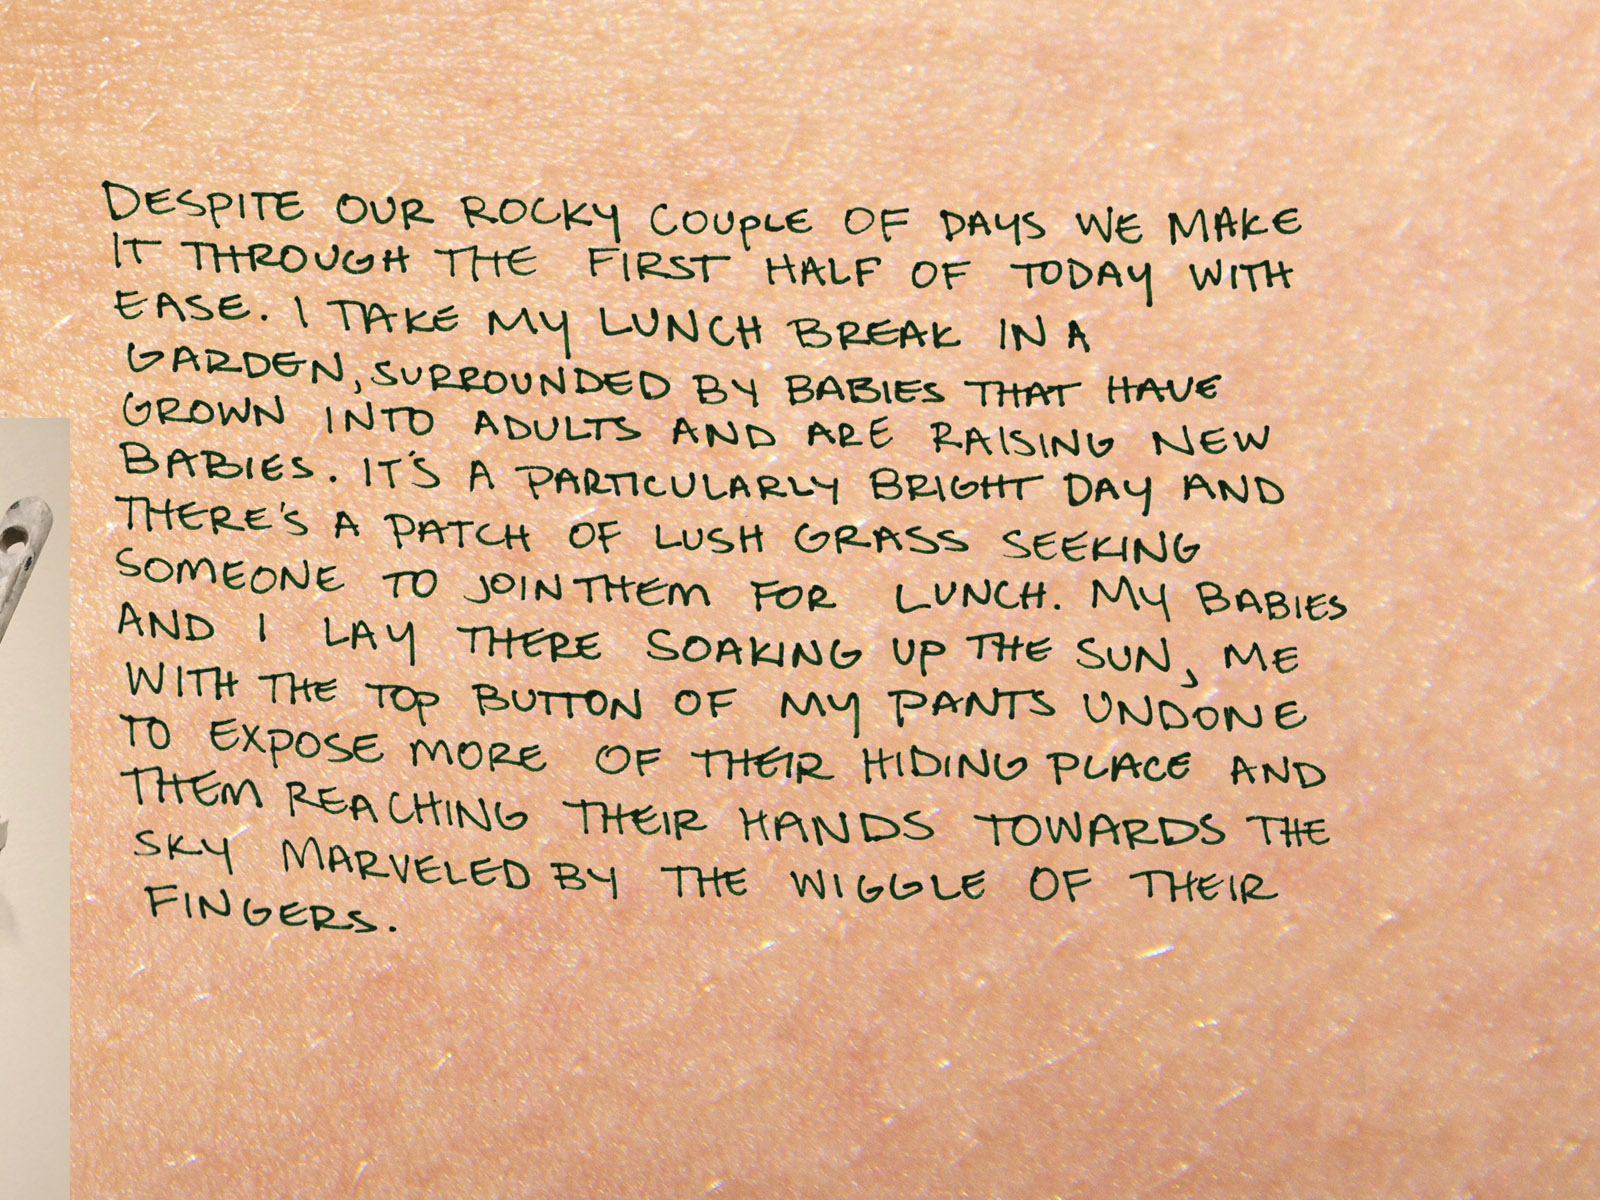 DESPITE OUR ROCKY COUPLE OF DAYS WE MAKE
IT THROUGH THE FIRST HALF OF TODAY WITH
EASE. I TAKE MY LUNCH BREAK IN A
GARDEN, SURROUNDED BY BABIES THAT HAVE
GROWN INTO ADULTS AND ARE RAISING NEW
BABIES. IT'S A PARTICULARLY BRIGHT DAY AND
THERE'S A PATCH OF LUSH GRASS SEEKING
SOMEONE TO JOIN THEM FOR LUNCH. MY BABIES
AND I LAY THERE SOAKING UP THE SUN, ME
WITH THE TOP BUTTON OF MY PANTS UNDONE
TO EXPOSE MORE OF THEIR HIDING PLACE AND
THEM REACHING THEIR HANDS TOWARDS THE
SKY MARVELED BY THE WIGGLE OF THEIR
FINGERS.